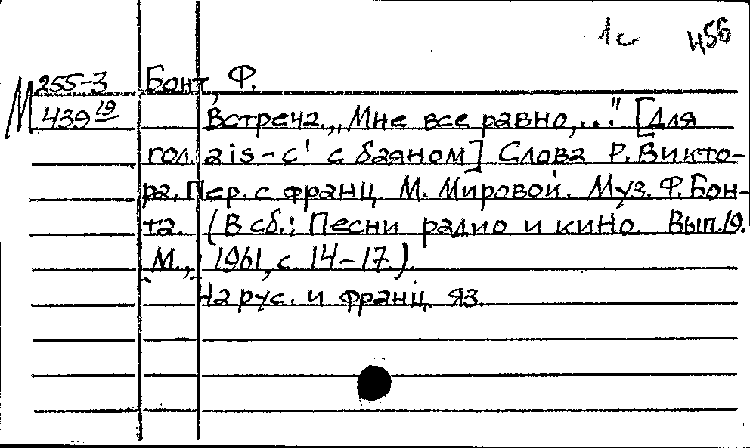 1с 456
М 255-3 Бонт, Ф.
439 19 Встреча. „Мне все равно,..." [Для
гол. ais-c' с баяном] Слова Р. Викто-
ра. Пер. с франц. М. Мировой. Муз. Ф. Бон-
та. (В сб.: Песни радио и кино. Вып. 19.
М., 1961, с. 14-17.)
На рус. и франц. яз.